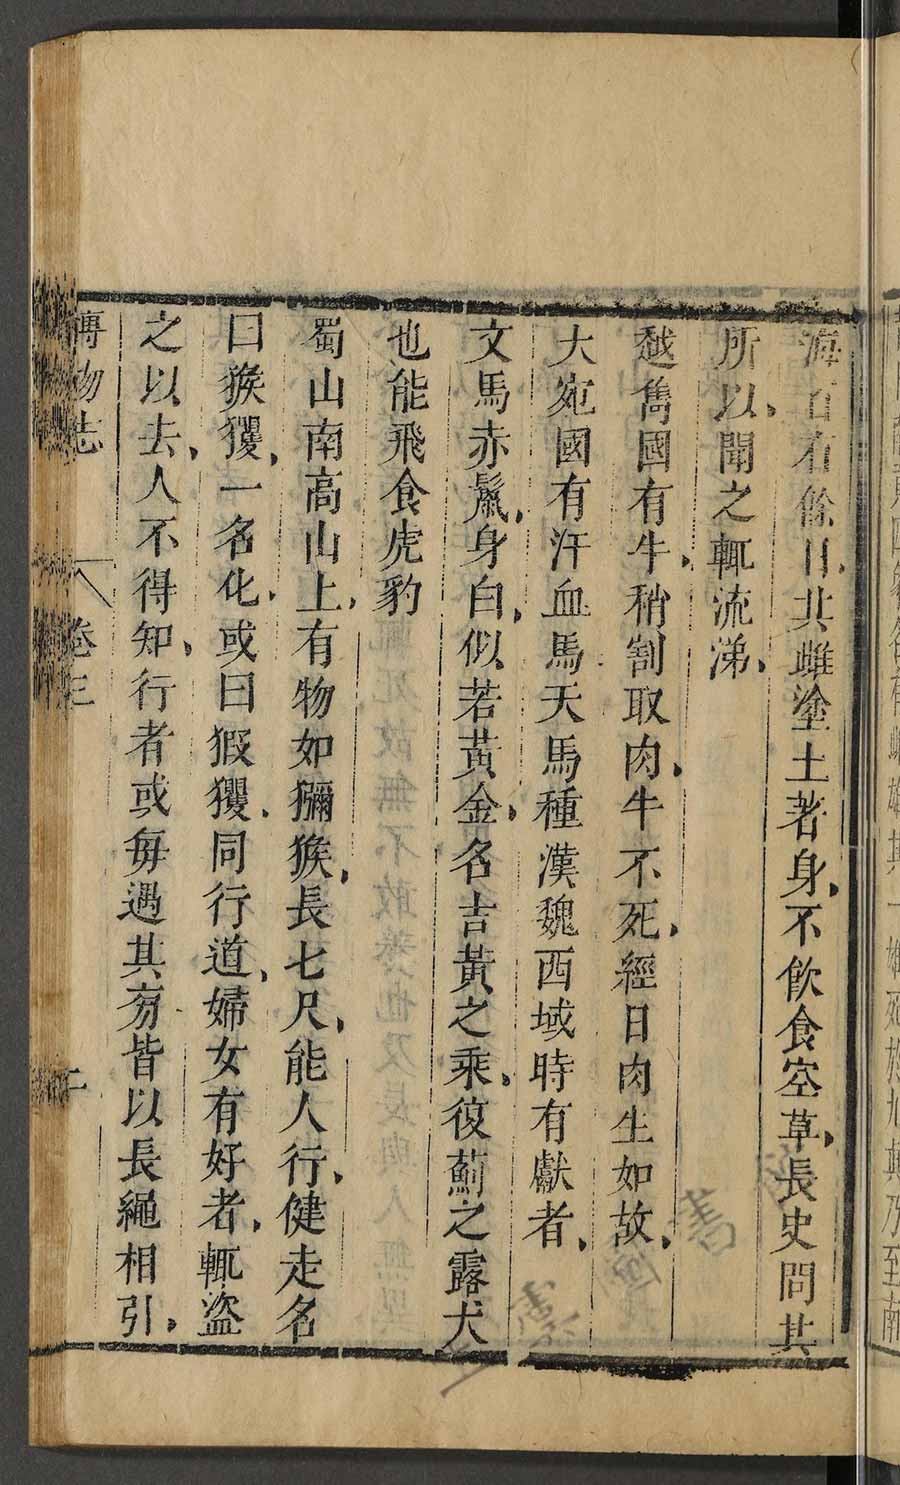 海百有餘日其雌塗土著身不飲食空草長史問其
所以聞之輒流涕
越雋國有牛稍割取肉牛不死經日肉生如故
大宛國有汗血馬天馬種漢魏西域時有獻者
文馬赤鬣身白似若黃金名吉黃之乘復薊之露犬
也能飛食虎豹
蜀山南高山上有物如獼猴長七尺能人行健走名
曰猴玃一名化或曰猳玃同行道婦女有好者輒盜
之以去人不得知行者或每遇其旁皆以長繩相引
博物志 卷三 二